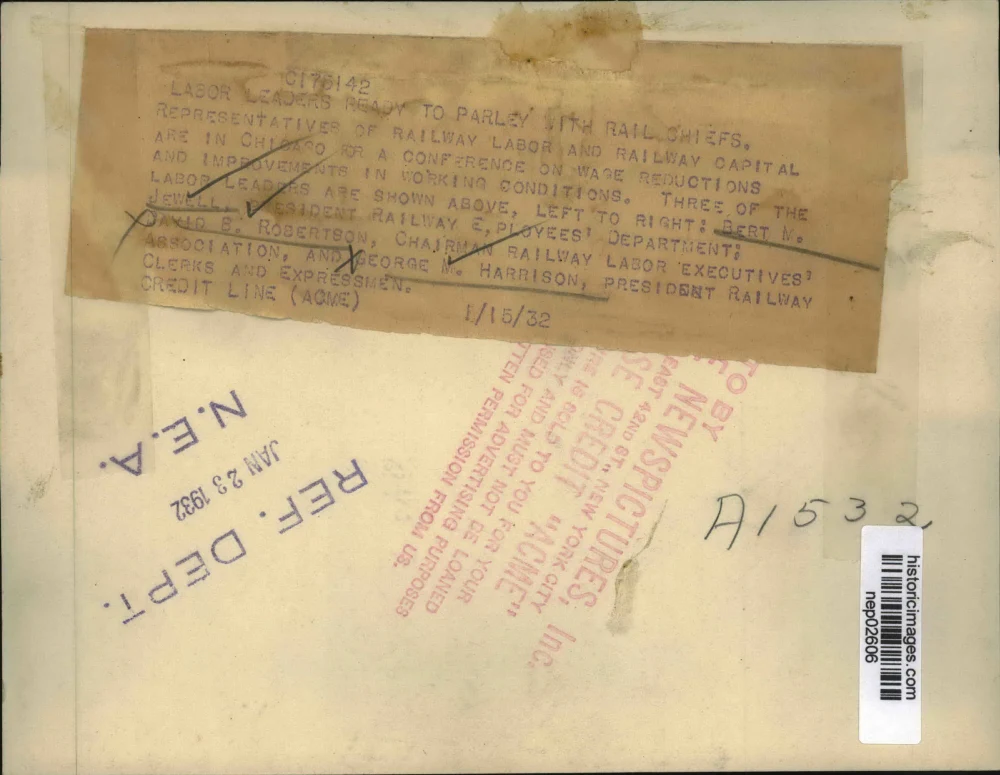 C175142
LABOR LEADERS READY TO PARLEY WITH RAIL CHIEFS.
REPRESENTATIVES OF RAILWAY LABOR AND RAILWAY CAPITAL
ARE IN CHICAGO FOR A CONFERENCE ON WAGE REDUCTIONS
AND IMPROVEMENTS IN WORKING CONDITIONS. THREE OF THE
LABOR LEADERS ARE SHOWN ABOVE, LEFT TO RIGHT: BERT M.
JEWELL, PRESIDENT RAILWAY E,PLOYEES' DEPARTMENT;
DAVID B. ROBERTSON, CHAIRMAN RAILWAY LABOR EXECUTIVES'
ASSOCIATION, AND GEORGE M. HARRISON, PRESIDENT RAILWAY
CLERKS AND EXPRESSMEN.
CREDIT LINE (ACME) 1/15/32
TO BY
NEWSPICTURES, Inc.
EAST 42ND ST., NEW YORK CITY
CREDIT "ACME"
IS SOLD TO YOU FOR YOUR
ONLY AND MUST NOT BE LOANED
USED FOR ADVERTISING PURPOSES
PERMISSION FROM US.
REF. DEPT.
JAN 23 1932
N.E.A.
A1532
historicimages.com
nep02606